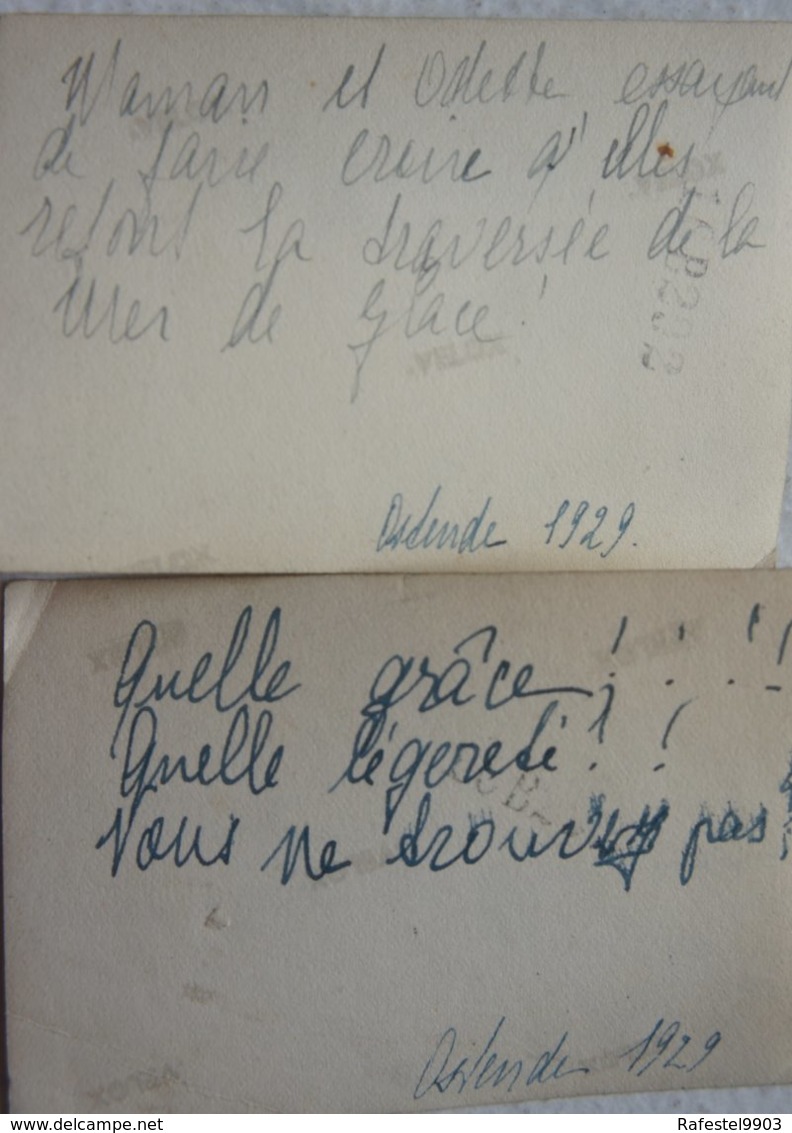 Maman et Odette essayant
de faire croire q' elles
refont la traversée de la
Mer de Glace !
Ostende 1929.
Quelle grâce ! ! ! !
Quelle légereté ! !
Vous ne trouvez pas
Ostende 1929
Rafestel9903